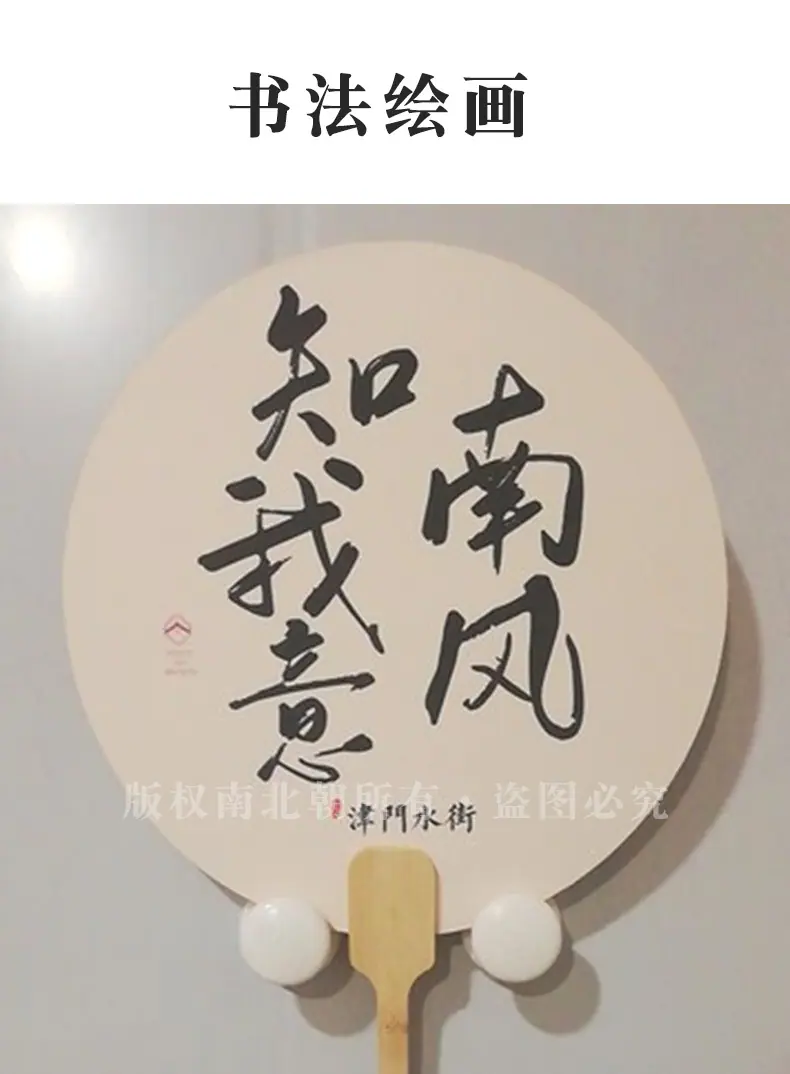 书法绘画
南风
知我意
版权南北朝所有·盗图必究
津門水街